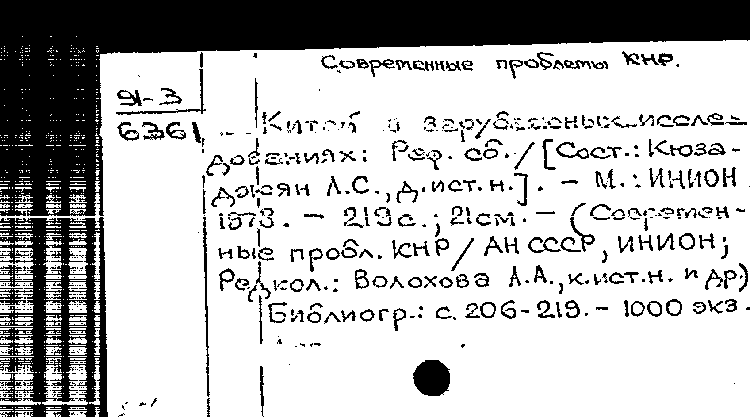 Современные проблемы КНР.
91-3
6361
Китай в зарубежных иссле-
дованиях: Реф. сб. / [Сост.: Кюза-
джян Л.С., д. ист. н.]. - М.: ИНИОН
1973. - 219 с.; 21 см. - (Современ-
ные пробл. КНР / АН СССР, ИНИОН;
Редкол.: Волохова А.А., к. ист. н. и др)
Библиогр.: с. 206-219. - 1000 экз.